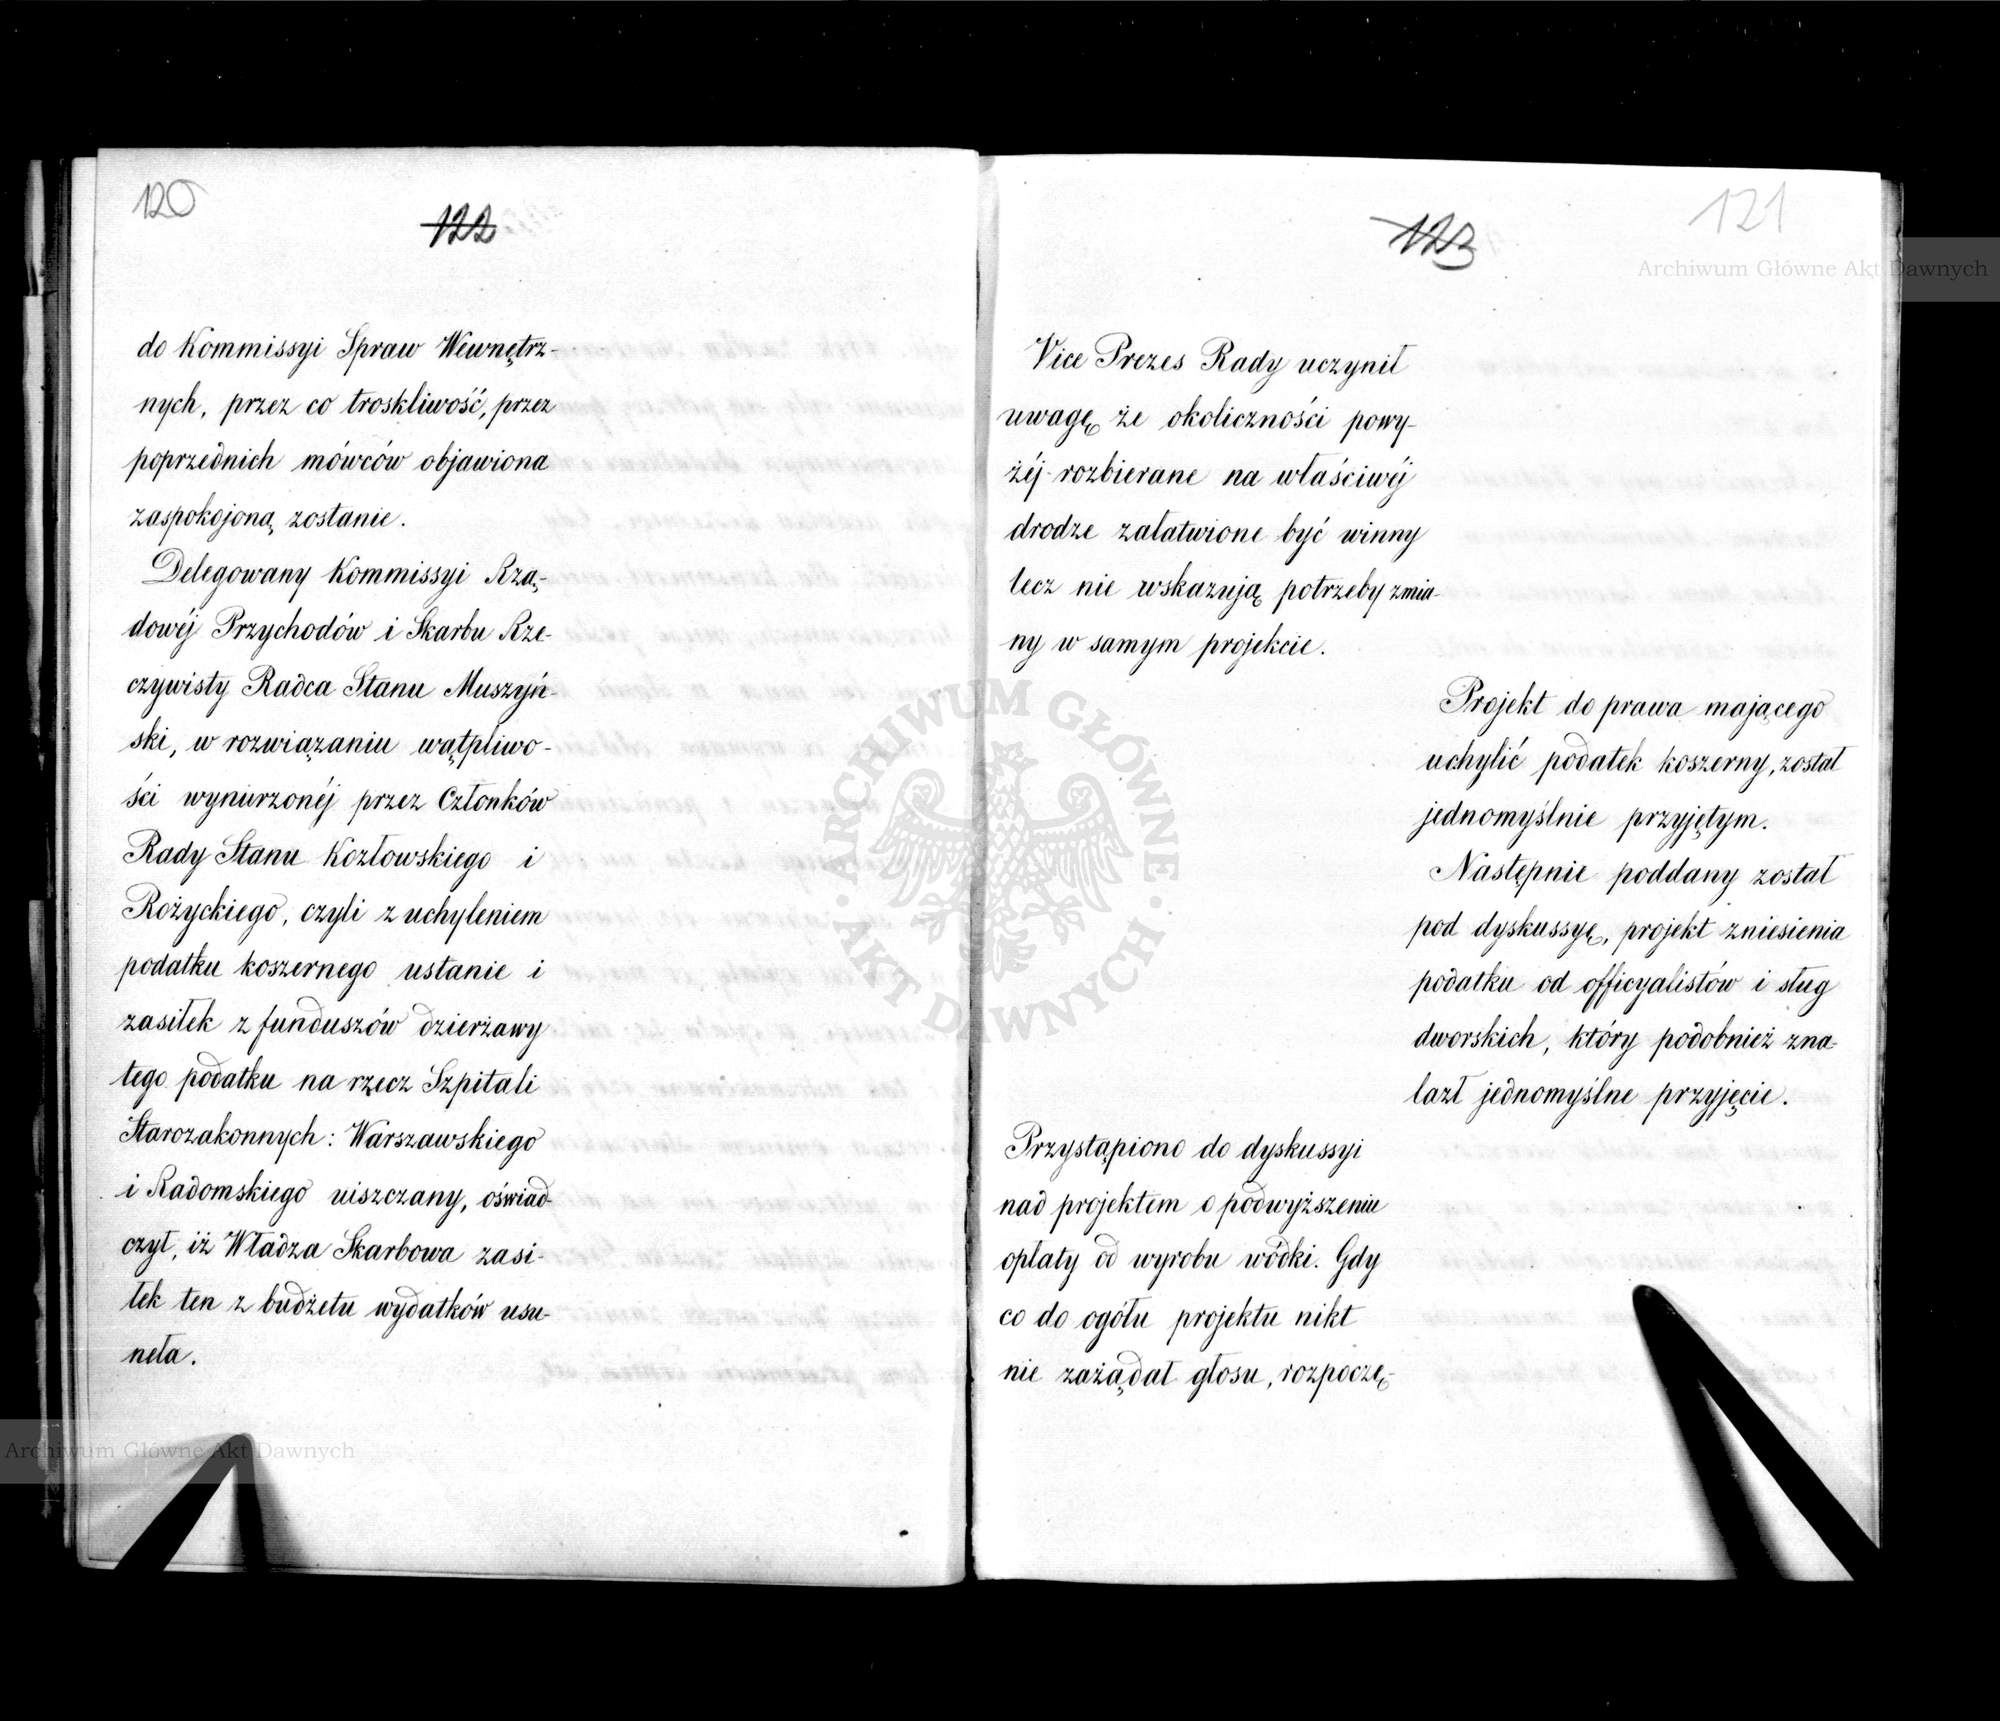 120
122
do Kommissyi Spraw Wewnętrz-
nych, przez co troskliwość, przez
poprzednich mówców objawiona
zaspokojoną zostanie.
Delegowany Kommissyi Rzą-
dowéj Przychodów i Skarbu Rze-
czywisty Radca Stanu Muszyń-
ski, w rozwiązaniu wątpliwo-
ści wynurzonéj przez Członków
Rady Stanu Kozłowskiego i
Rożyckiego, czyli z uchyleniem
podatku koszernego ustanie i
zasiłek z funduszów dzierżawy
tego podatku na rzecz Szpitali
Starozakonnych: Warszawskiego
i Radomskiego uiszczany, oświad-
czył, iż Władza Skarbowa zasi-
łek ten z budżetu wydatków usu-
nęła.
121
123
Vice Prezes Rady uczynił
uwagę że okoliczności powy-
żéj rozbierane na właściwéj
drodze załatwione być winny
lecz nie wskazują potrzeby zmia-
ny w samym projekcie.
Projekt do prawa mającego
uchylić podatek koszerny, został
jednomyślnie przyjętym.
Następnie poddany został
pod dyskussyę, projekt zniesienia
podatku od officyalistów i sług
dworskich, który podobnież zna-
lazł jednomyślne przyjęcie.
Przystąpiono do dyskussyi
nad projektem o podwyższeniu
opłaty od wyrobu wódki. Gdy
co do ogółu projektu nikt
nie zażądał głosu, rozpoczę-
Archiwum Główne Akt Dawnych
ARCHIWUM GŁÓWNE
AKT DAWNYCH
Archiwum Główne Akt Dawnych